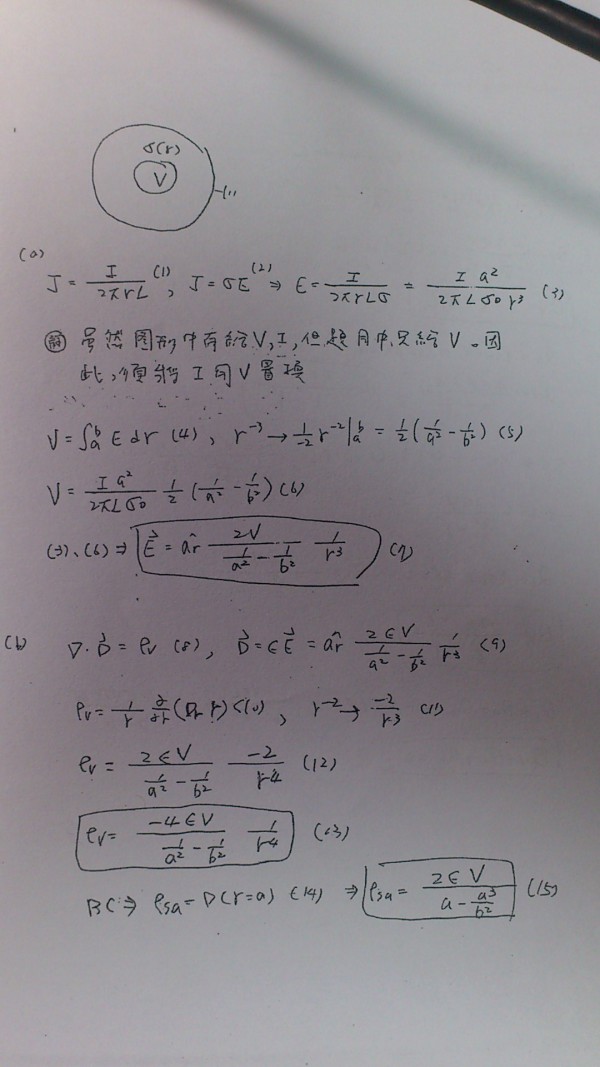 σ(r)
V
(a)
J = I / 2πrL (1), J = σE (2) ⇒ E = I / 2πrLσ = I a² / 2πLσ₀ r³ (3)
雖然圖形中有給V, I, 但題目中只給V。因
此,須將 I 用 V 置換
V = ∫ₐᵇ E dr (4), r⁻³ → 1/-2 r⁻² |ₐᵇ = 1/2 (1/a² - 1/b²) (5)
V = I a² / 2πLσ₀ 1/2 (1/a² - 1/b²) (6)
(3)、(6) ⇒ E⃗ = âr 2V / (1/a² - 1/b²) 1/r³ (7)
(b) ∇·D⃗ = ρv (8), D⃗ = ϵE⃗ = âr 2ϵV / (1/a² - 1/b²) 1/r³ (9)
ρv = 1/r ∂/∂r (Dr r) (10), r⁻² → -2/r³ (11)
ρv = 2ϵV / (1/a² - 1/b²) -2/r⁴ (12)
ρv = -4ϵV / (1/a² - 1/b²) 1/r⁴ (13)
BC ⇒ ρsa = D(r=a) (14) ⇒ ρsa = 2ϵV / (a - a³/b²) (15)